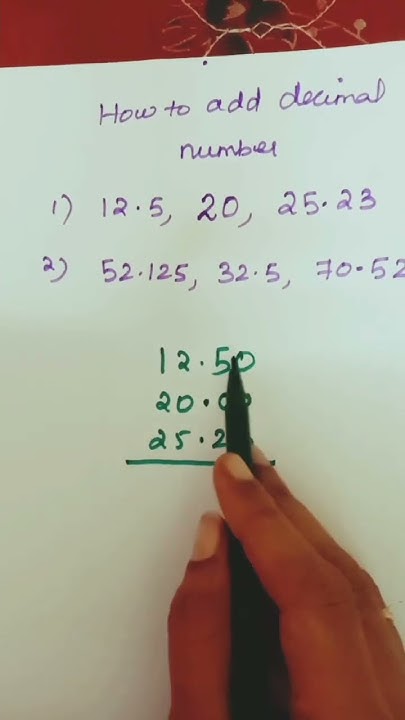 How to add decimal
number
1) 12.5, 20, 25.23
2) 52.125, 32.5, 70.52
12.50
20.0
25.2